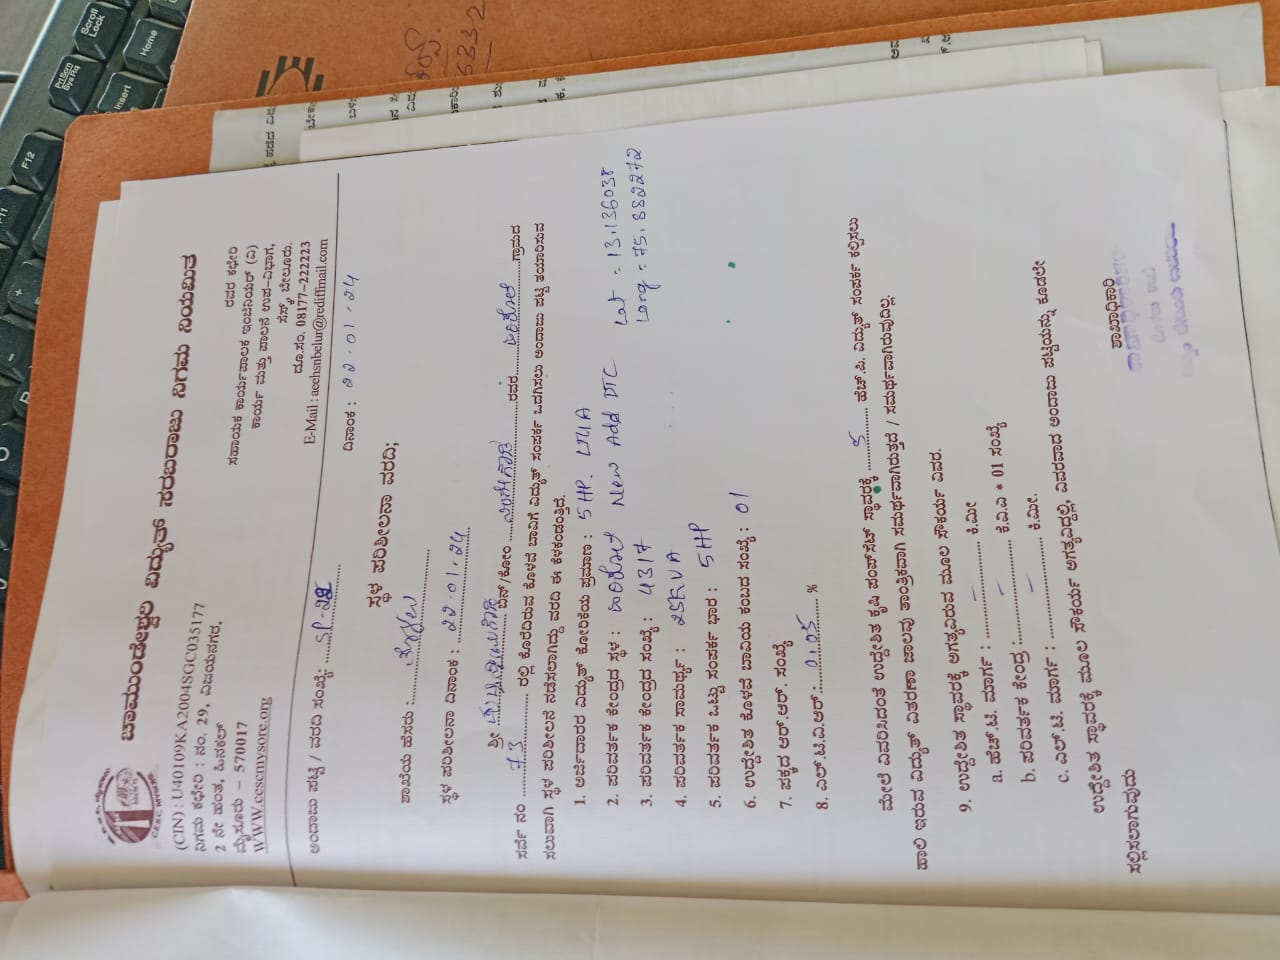 ಚಾಮುಂಡೇಶ್ವರಿ ವಿದ್ಯುತ್ ಸರಬರಾಜು ನಿಗಮ ನಿಯಮಿತ
(CIN) : U40109KA2004SGC035177
ನಿಗಮ ಕಛೇರಿ : ನಂ. 29, ವಿಜಯನಗರ,
2 ನೇ ಹಂತ, ಹಿನಕಲ್
ಮೈಸೂರು – 570017
WWW.cescmysore.org
ರವರ ಕಛೇರಿ
ಸಹಾಯಕ ಕಾರ್ಯಪಾಲಕ ಇಂಜಿನಿಯರ್ (ವಿ)
ಕಾರ್ಯ ಮತ್ತು ಪಾಲನೆ ಉಪ-ವಿಭಾಗ,
ಸೆಸ್ಕ್, ಬೇಲೂರು.
ದೂ.ಸಂ. 08177-222223
E-Mail : aeehsnbelur@rediffmail.com
ಅಂದಾಜು ಪಟ್ಟಿ / ವರದಿ ಸಂಖ್ಯೆ: SP-28
ದಿನಾಂಕ : 22-01-24
ಸ್ಥಳ ಪರಿಶೀಲನಾ ವರದಿ;
ಶಾಖೆಯ ಹೆಸರು :
ಸ್ಥಳ ಪರಿಶೀಲನಾ ದಿನಾಂಕ : 22-01-24
ಶ್ರೀ ಬಿನ್/ಕೋಂ ರವರ ಗ್ರಾಮದ
ಸರ್ವೆ ನಂ 73 ರಲ್ಲಿ ಕೊರೆದಿರುವ ಕೊಳವೆ ಬಾವಿಗೆ ವಿದ್ಯುತ್ ಸಂಪರ್ಕ ಒದಗಿಸಲು ಅಂದಾಜು ಪಟ್ಟಿ ತಯಾರಿಸುವ
ಸಲುವಾಗಿ ಸ್ಥಳ ಪರಿಶೀಲನೆ ನಡೆಸಲಾಗಿದ್ದು ವರದಿ ಈ ಕೆಳಕಂಡಂತ್ತಿದೆ.
1. ಅರ್ಜಿದಾರರ ವಿದ್ಯುತ್ ಕೋರಿಕೆಯ ಪ್ರಮಾಣ : 5 HP.
2. ಪರಿವರ್ತಕ ಕೇಂದ್ರದ ಸ್ಥಳ : New Add DTC Lat = 13.136038
3. ಪರಿವರ್ತಕ ಕೇಂದ್ರದ ಸಂಖ್ಯೆ : 4317 Long = 75.882272
4. ಪರಿವರ್ತಕ ಸಾಮರ್ಥ್ಯ : 25KVA
5. ಪರಿವರ್ತಕ ಒಟ್ಟು ಸಂಪರ್ಕ ಭಾರ : 5HP
6. ಉದ್ದೇಶಿತ ಕೊಳವೆ ಬಾವಿಯ ಕಂಬದ ಸಂಖ್ಯೆ : 01
7. ಪಕ್ಕದ ಆರ್.ಆರ್. ಸಂಖ್ಯೆ
8. ಎಲ್.ಟಿ.ವಿ.ಆರ್: 0.05 %
ಮೇಲೆ ವಿವರಿಸಿದಂತೆ ಉದ್ದೇಶಿತ ಕೃಷಿ ಪಂಪ್‌ಸೆಟ್ ಸ್ಥಾವರಕ್ಕೆ 5 ಹೆಚ್.ಪಿ. ವಿದ್ಯುತ್ ಸಂಪರ್ಕ ಕಲ್ಪಿಸಲು
ಹಾಲಿ ಇರುವ ವಿದ್ಯುತ್ ವಿತರಣಾ ಜಾಲವು ತಾಂತ್ರಿಕವಾಗಿ ಸಮರ್ಥವಾಗಿರುತ್ತದೆ / ಸಮರ್ಥವಾಗಿರುವುದಿಲ್ಲ.
9. ಉದ್ದೇಶಿತ ಸ್ಥಾವರಕ್ಕೆ ಅಗತ್ಯವಿರುವ ಮೂಲ ಸೌಕರ್ಯ ವಿವರ.
a. ಹೆಚ್.ಟಿ. ಮಾರ್ಗ : – ಕಿ.ಮೀ
b. ಪರಿವರ್ತಕ ಕೇಂದ್ರ : – ಕೆ.ವಿ.ಎ * 01 ಸಂಖ್ಯೆ
c. ಎಲ್.ಟಿ. ಮಾರ್ಗ : – ಕಿ.ಮೀ.
ಉದ್ದೇಶಿತ ಸ್ಥಾವರಕ್ಕೆ ಮೂಲ ಸೌಕರ್ಯ ಅಗತ್ಯವಿದ್ದಲ್ಲಿ, ವಿವರವಾದ ಅಂದಾಜು ಪಟ್ಟಿಯನ್ನು ಕೂಡಲೇ
ಸಲ್ಲಿಸಲಾಗುವುದು
ಶಾಖಾಧಿಕಾರಿ
Scroll Lock
Home
PrtScn SysRq
Insert
F12
F11